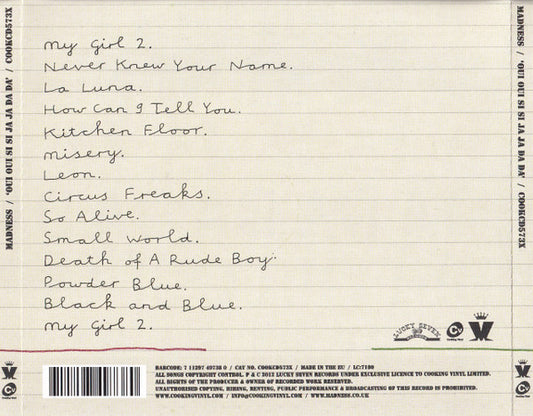 MADNESS / 'OUI OUI SI SI JA JA DA DA' / COOKCD573X
My Girl 2.
Never Knew Your Name.
La Luna.
How Can I Tell You.
Kitchen Floor.
Misery.
Leon.
Circus Freaks.
So Alive.
Small World.
Death of A Rude Boy.
Powder Blue.
Black and Blue.
My Girl 2.
LUCKY SEVEN
RECORDS
Cooking Vinyl
BARCODE: 7 11297 49738 0 / CAT NO. COOKCD573X / MADE IN THE EU / LC:7180
ALL SONGS COPYRIGHT CONTROL. P & C 2012 LUCKY SEVEN RECORDS UNDER EXCLUSIVE LICENCE TO COOKING VINYL LIMITED.
ALL RIGHTS OF THE PRODUCER & OWNER OF RECORDED WORK RESERVED.
UNAUTHORISED COPYING, HIRING, RENTING, PUBLIC PERFORMANCE & BROADCASTING OF THIS RECORD IS PROHIBITED.
WWW.COOKINGVINYL.COM / INFO@COOKINGVINYL.COM / WWW.MADNESS.CO.UK
MADNESS / 'OUI OUI SI SI JA JA DA DA' / COOKCD573X